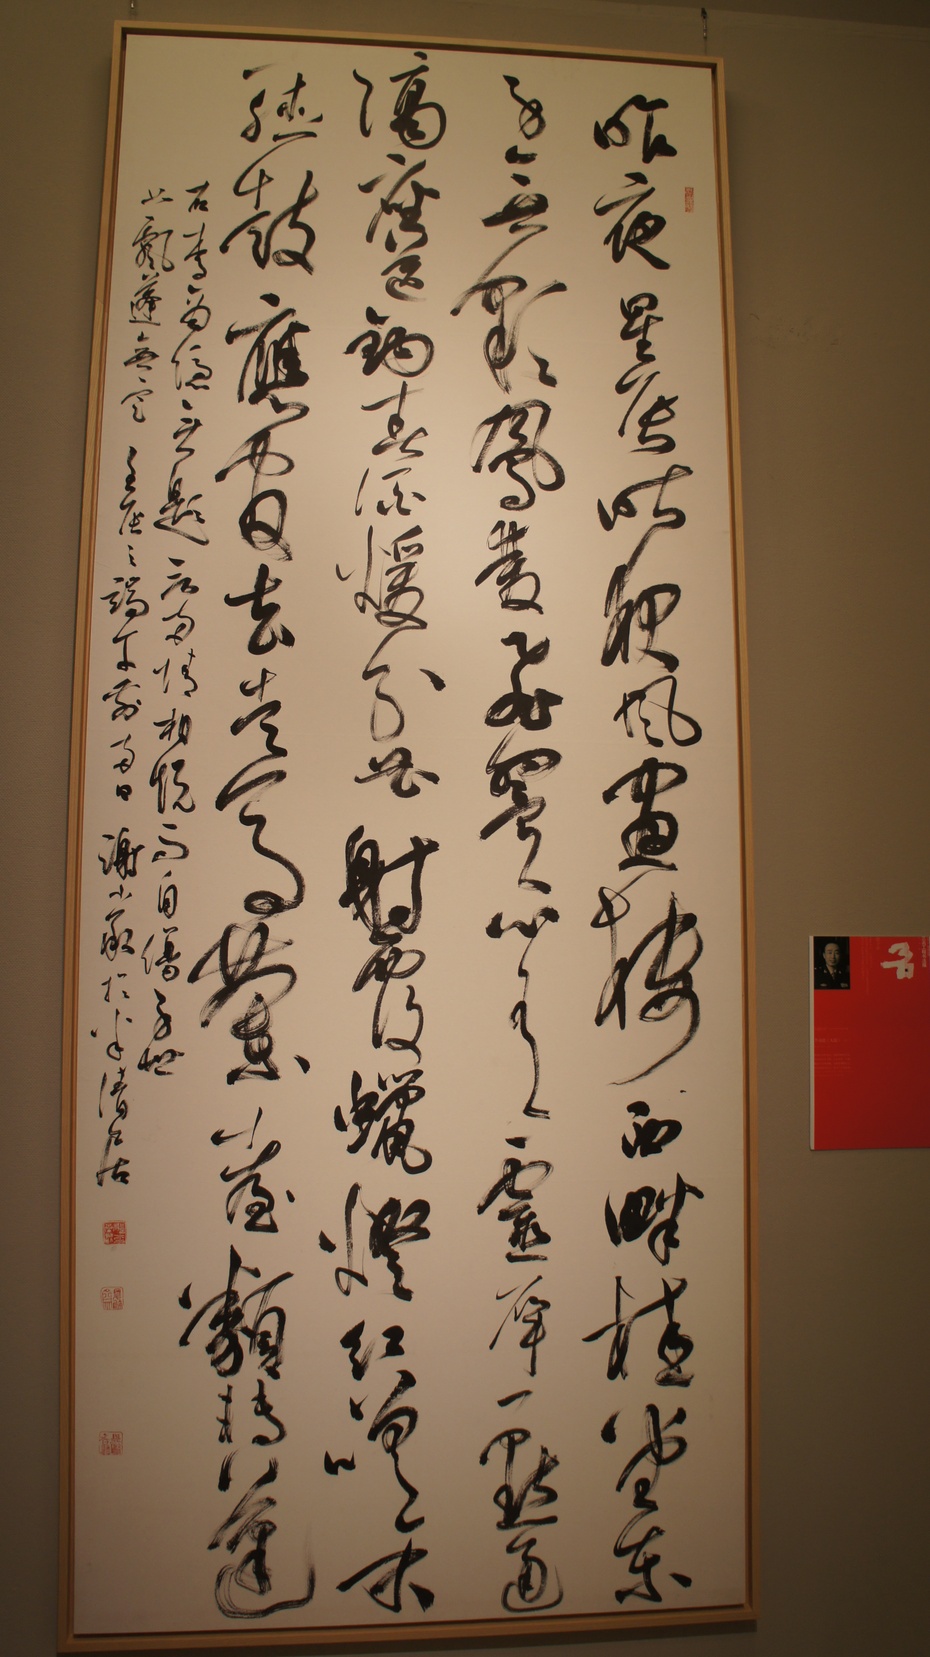 昨夜星辰昨夜風畫樓西畔桂堂東
身無彩鳳雙飛翼心有靈犀一點通
隔座送鉤春酒暖分曹射覆蠟燈紅嗟余
聽鼓應官去走馬蘭臺類轉蓬
右李商隱無題言兩情相悅而自傷身世
如飄蓬無定之端午前兩日謝小於半清居